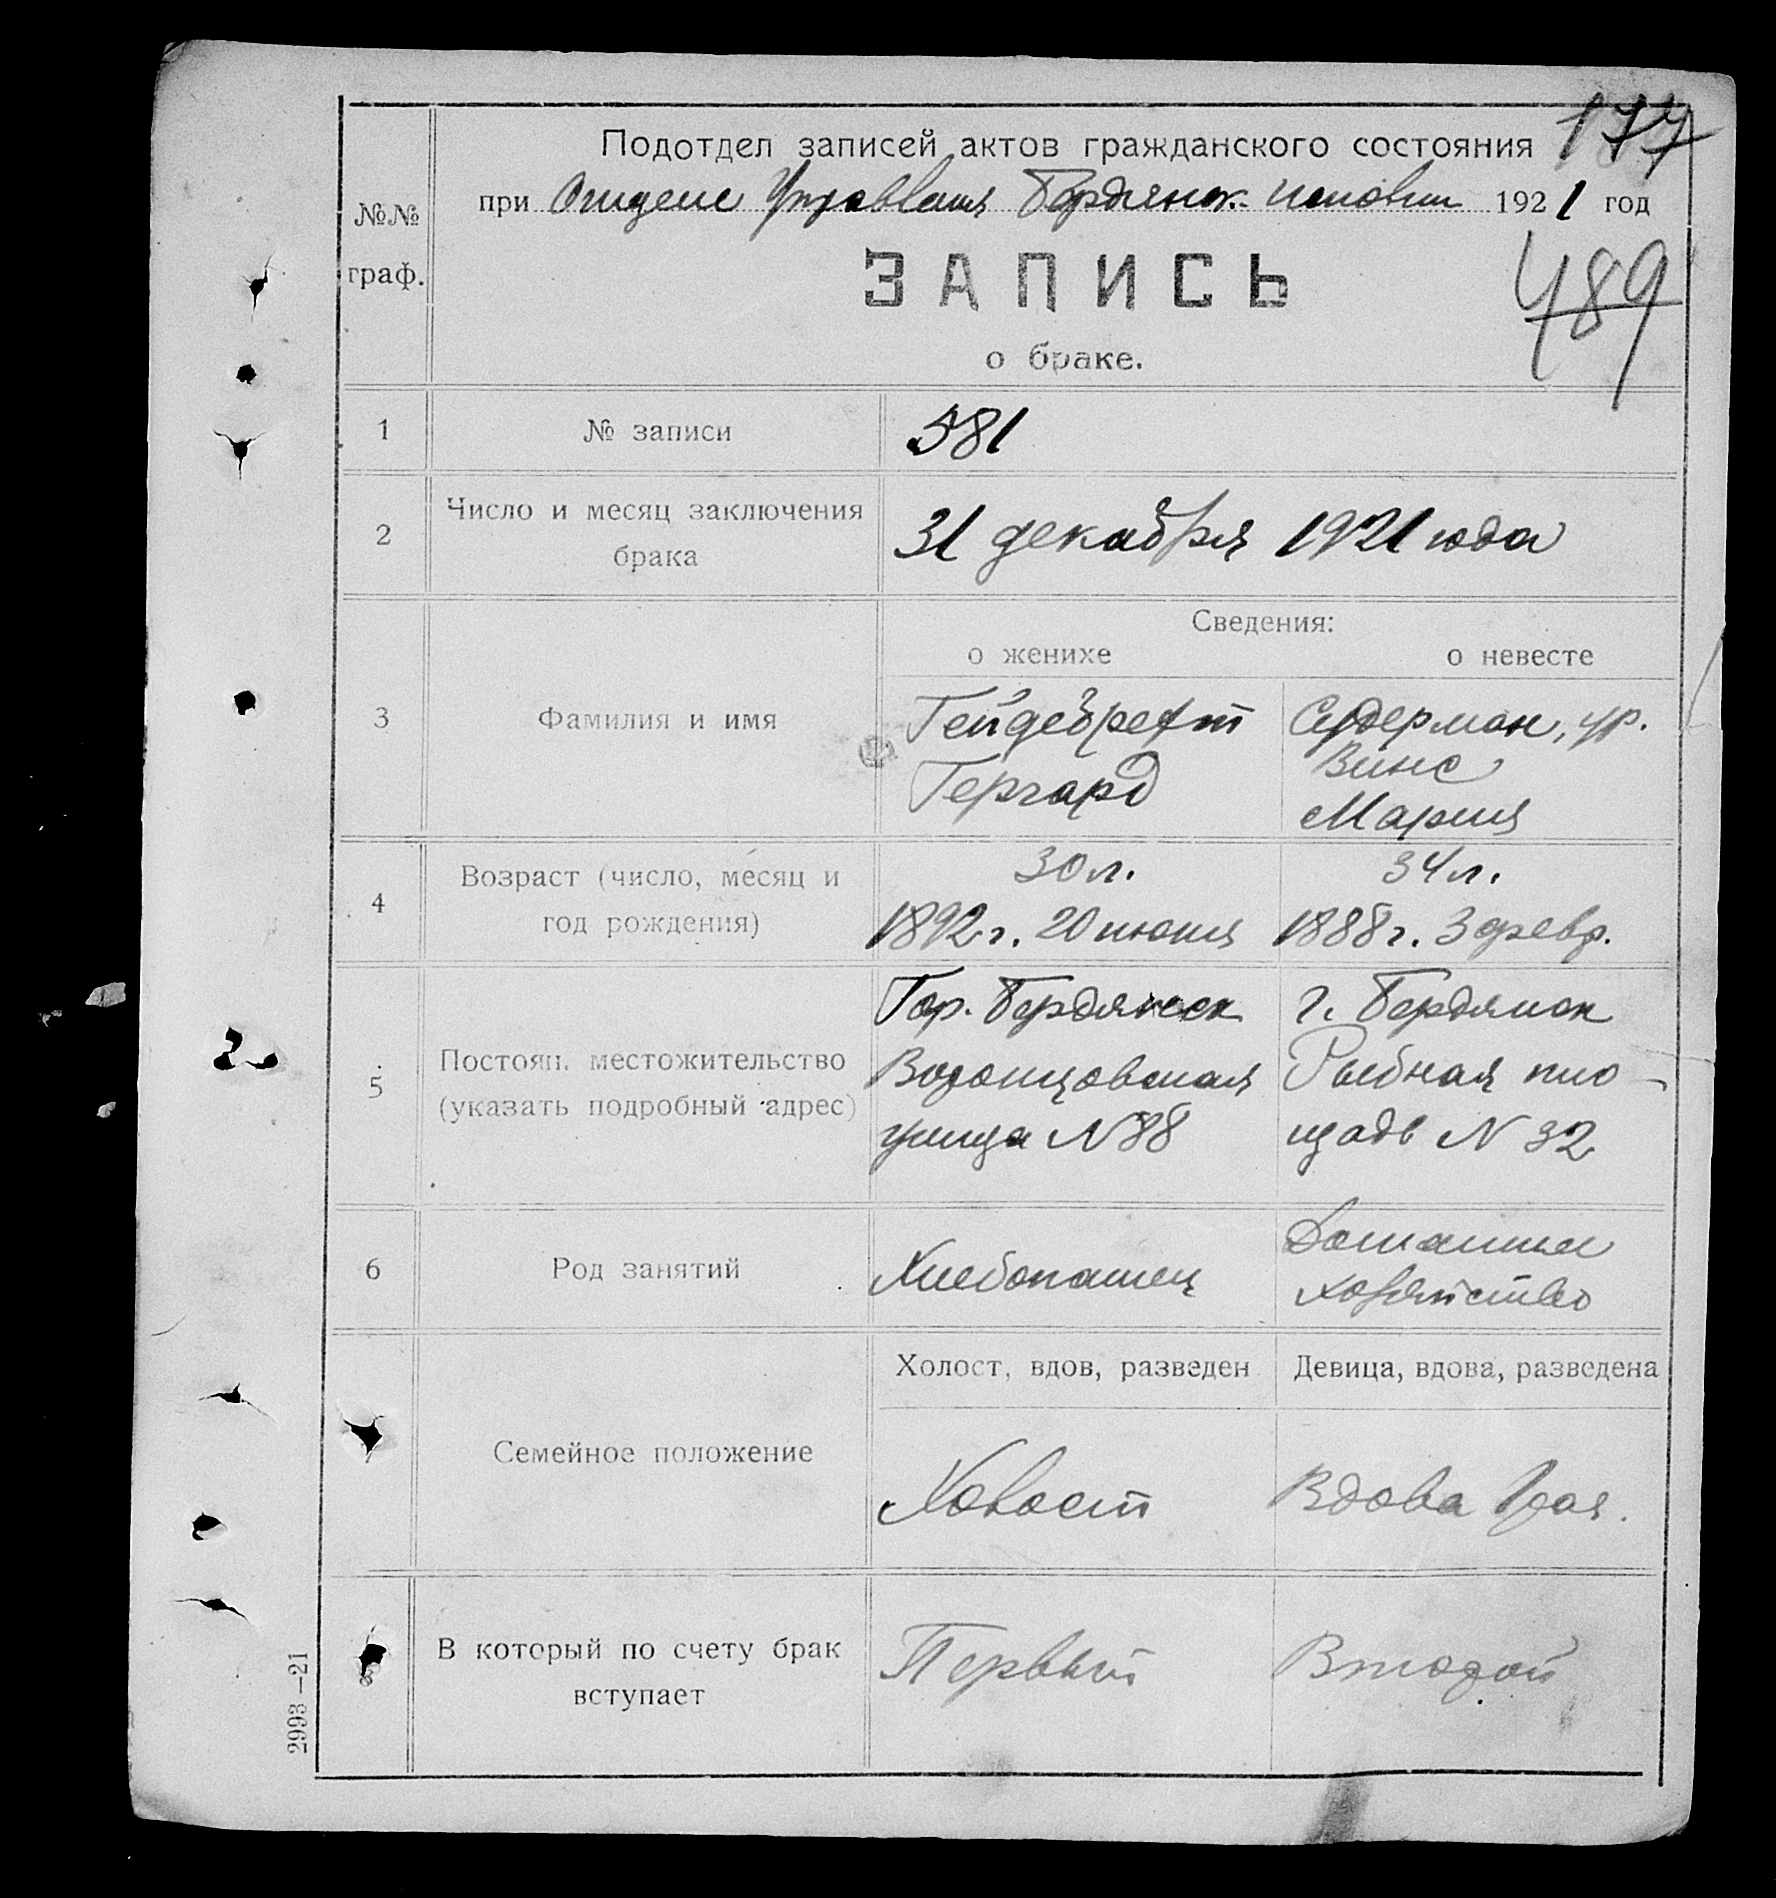 177
Подотдел записей актов гражданского состояния
при Отделе Управления Бердянск. исполкома 1921 год
№№
граф.
489
ЗАПИСЬ
о браке.
1 № записи 581
2 Число и месяц заключения
брака
31 декабря 1921 года
Сведения:
о женихе о невесте
3 Фамилия и имя
Гейдебрехт
Гергард
Судерман, ур.
Винс
Мария
4 Возраст (число, месяц и
год рождения)
30 л.
1892 г. 20 июня
34 л.
1888 г. 3 февр.
5 Постоян. местожительство
(указать подробный адрес)
Гор. Бердянск
Воронцовская
улица № 88
г. Бердянск
Рыбная пло-
щадь № 32
6 Род занятий
Хлебопашец
Домашнее
хозяйство
Холост, вдов, разведен
Девица, вдова, разведена
Семейное положение
Холост
Вдова
8 В который по счету брак
вступает
Первый
Второй
2993—21